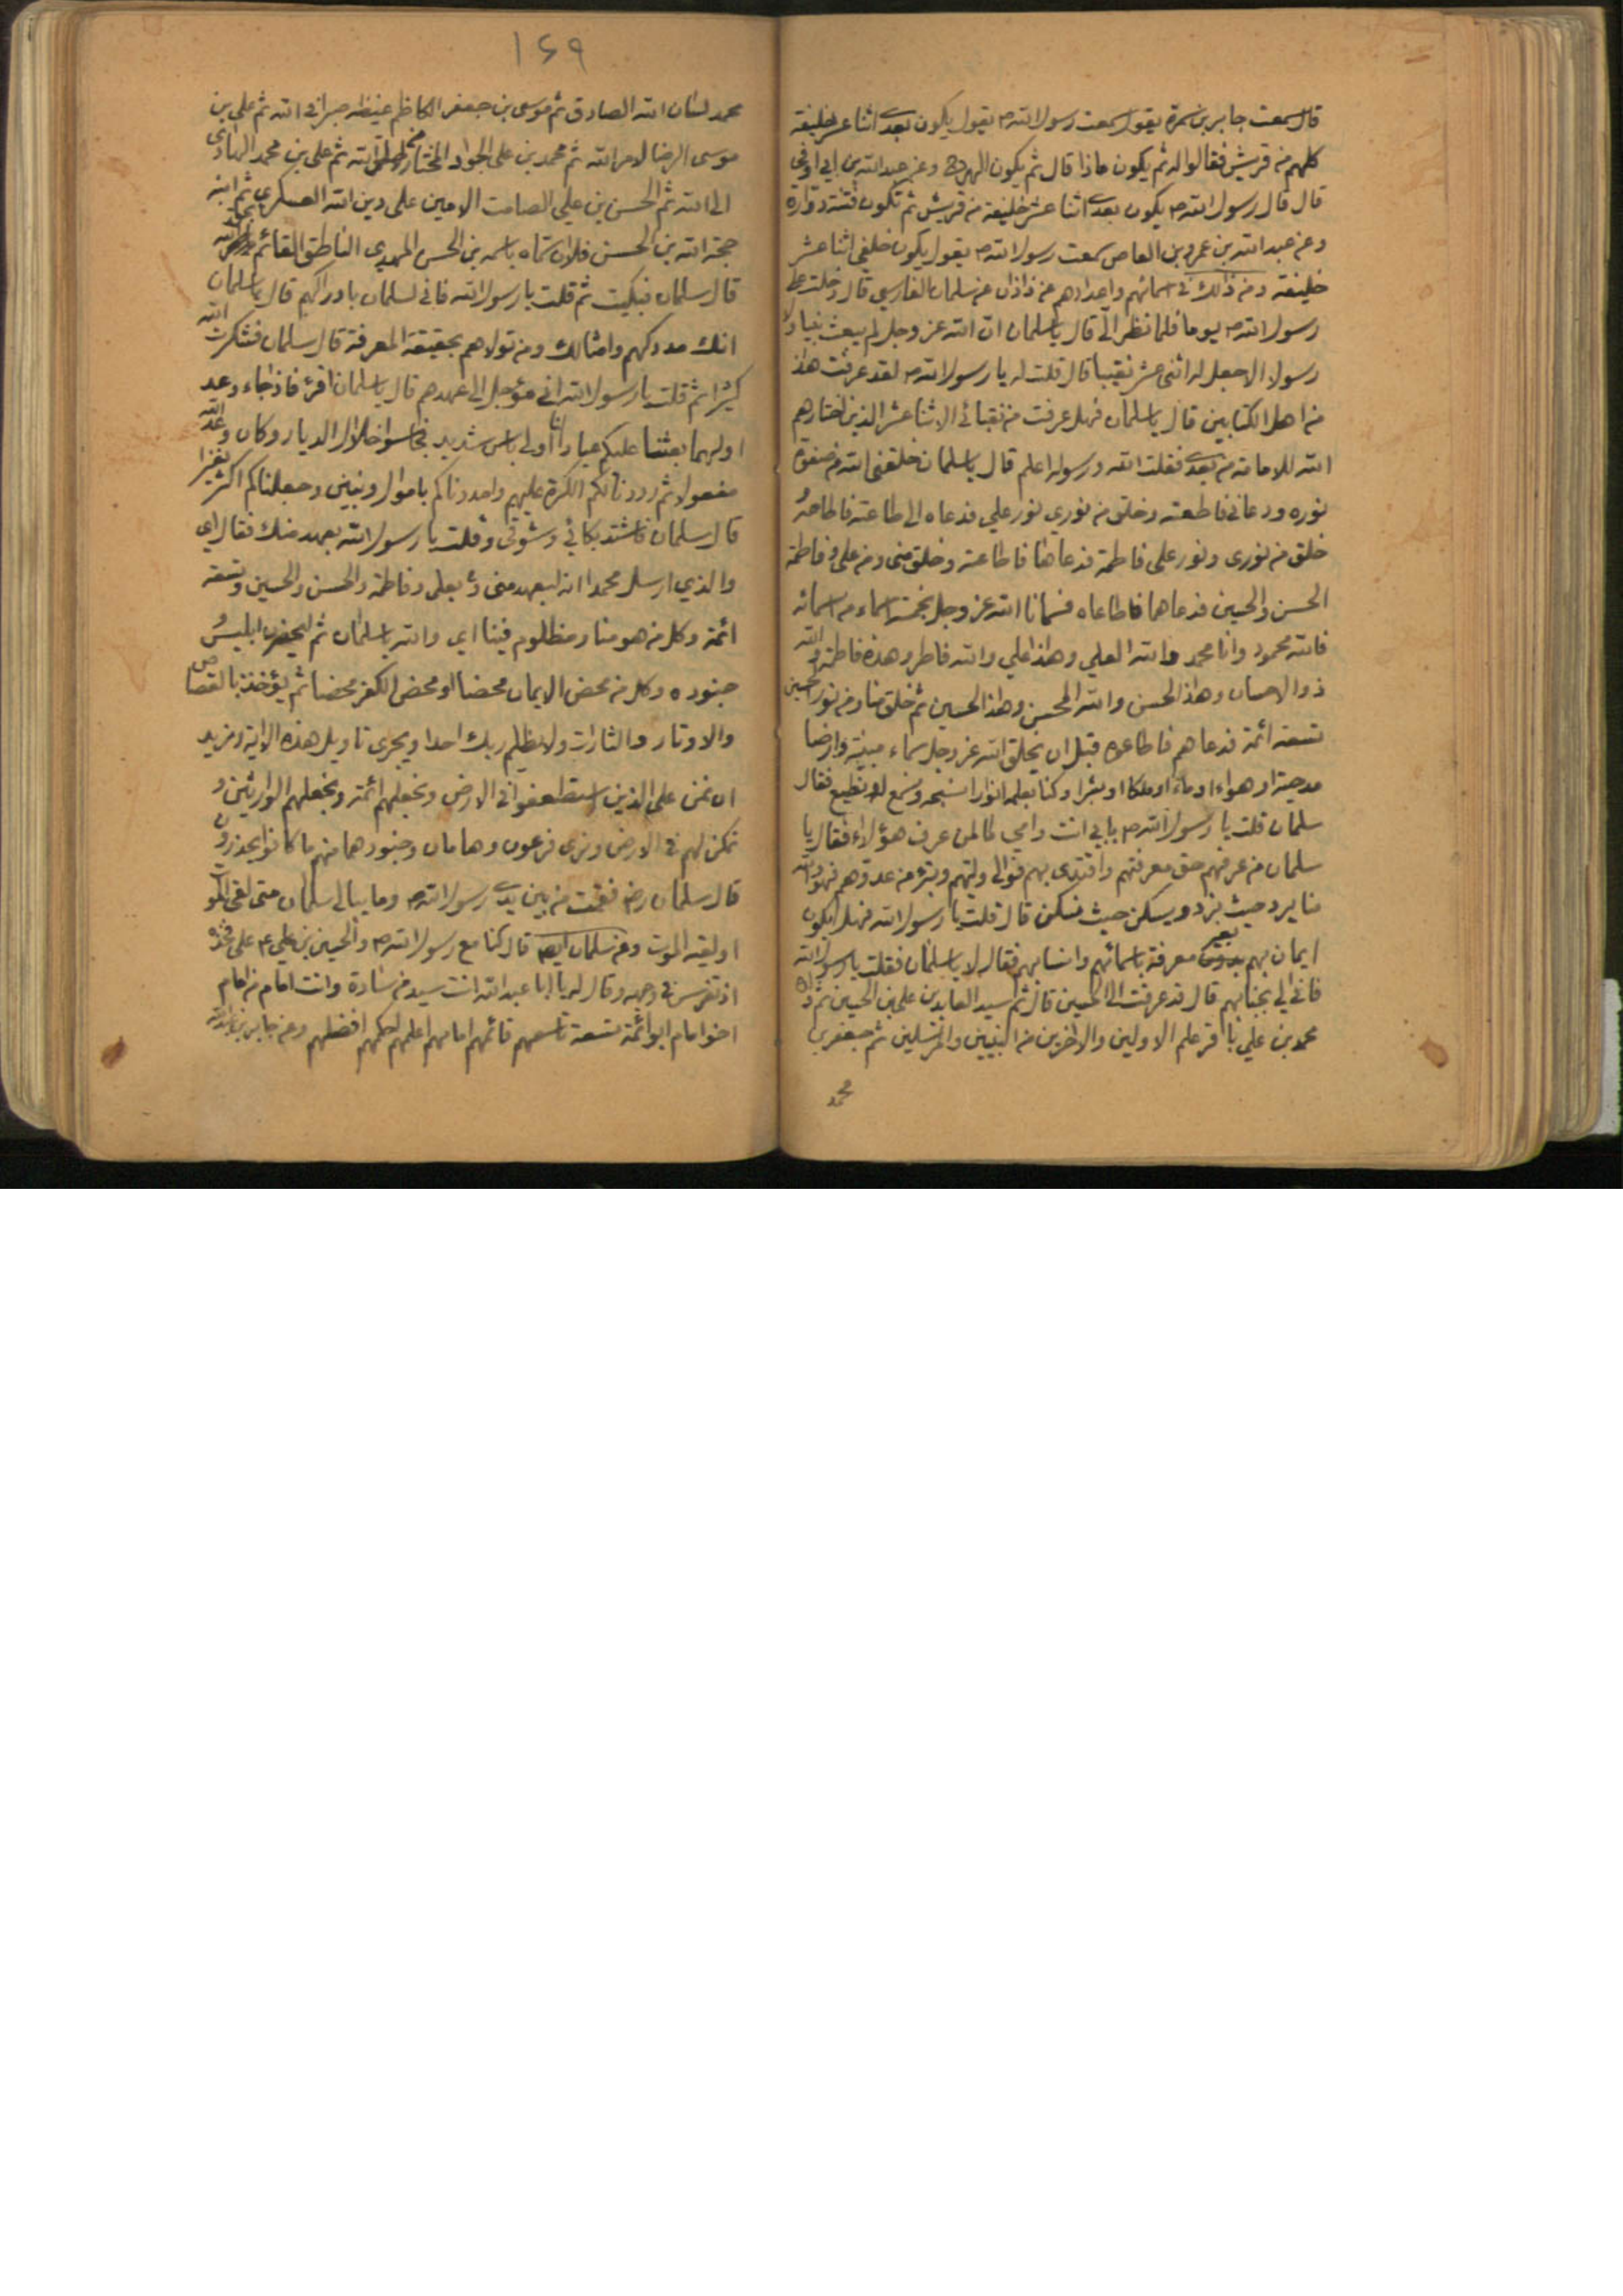 قال سمعت جابر بن سمرة يقول سمعت رسول الله ص يقول يكون بعدي اثنا عشر خليفة
كلهم من قريش فقالوا له ثم يكون ماذا قال ثم يكون الهرج وعن عبد الله بن ابي اوفى
قال قال رسول الله ص يكون بعدي اثنا عشر خليفة من قريش ثم تكون فتنة دوارة
وعن عبد الله بن عمرو بن العاص سمعت رسول الله ص يقول يكون خلفي اثنا عشر
خليفة ومن ذلك في اسمائهم واعدادهم عن زاذان عن سلمان الفارسي قال دخلت على
رسول الله ص يوما فلما نظر الي قال يا سلمان ان الله عز وجل لم يبعث نبيا ولا
رسولا الا جعل له اثنى عشر نقيبا قال قلت له يا رسول الله ص لقد عرفت هذا
من اهل الكتابين قال يا سلمان فهل عرفت من نقبائي الاثنا عشر الذين اختارهم
الله للامامة من بعدي فقلت الله ورسوله اعلم قال يا سلمان خلقني الله من صفوة
نوره ودعاني فاطعته وخلق من نوري نور علي فدعاه الى طاعته فاطاعه
خلق من نوري ونور علي فاطمة فدعاها فاطاعته وخلق مني ومن علي وفاطمة
الحسن والحسين فدعاهما فاطاعاه فسمانا الله عز وجل بخمسة اسماء من اسمائه
فالله محمود وانا محمد والله العلي وهذا علي والله فاطر وهذه فاطمة والله
ذو الاحسان وهذا الحسن والله المحسن وهذا الحسين ثم خلق منا ومن نور الحسين
تسعة ائمة فدعاهم فاطاعوه قبل ان يخلق الله عز وجل سماء مبنية وارضا
مدحية او هواء او ماء او ملكا او بشرا وكنا بعلمه انوارا نسبحه ونسمع له ونطيع فقال
سلمان قلت يا رسول الله ص بابي انت وامي فما لمن عرف هؤلاء فقال يا
سلمان من عرفهم حق معرفتهم واقتدى بهم فوالى وليهم وتبرء من عدوهم فهو والله
منا يرد حيث نرد ويسكن حيث نسكن قال قلت يا رسول الله فهل يكون
ايمان بهم بغير معرفة باسمائهم وانسابهم فقال لا يا سلمان فقلت يا رسول الله
فانى لي بجنابهم قال قد عرفت الى الحسين قال ثم سيد العابدين علي بن الحسين ثم ولده
محمد بن علي باقر علم الاولين والاخرين من النبيين والمرسلين ثم جعفر بن
محمد
١٤٩
محمد لسان الله الصادق ثم موسى بن جعفر الكاظم غيظه صبرا في الله ثم علي بن
موسى الرضا لامر الله ثم محمد بن علي الجواد المختار من خلق الله ثم علي بن محمد الهادي
الى الله ثم الحسن بن علي الصامت الامين على دين الله العسكري ثم ابنه
حجة الله بن الحسن فلان سماه باسمه بن الحسن المهدي الناطق القائم بحق الله
قال سلمان فبكيت ثم قلت يا رسول الله فانى لسلمان بادراكهم قال يا سلمان
انك مدركهم وامثالك ومن تولاهم بحقيقة المعرفة قال سلمان فشكرت الله
كثيرا ثم قلت يا رسول الله اني مؤجل الى عهدهم قال يا سلمان اقرء فاذا جاء وعد
اولهما بعثنا عليكم عبادا لنا اولي باس شديد فجاسوا خلال الديار وكان وعد الله
مفعولا ثم رددنا لكم الكرة عليهم وامددناكم باموال وبنين وجعلناكم اكثر نفيرا
قال سلمان فاشتد بكائي وشوقي وقلت يا رسول الله بعهد منك فقال اي
والذي ارسل محمدا انه لبعهد مني وبعلي وفاطمة والحسن والحسين وتسعة
ائمة وكل من هو منا ومظلوم فينا اي والله يا سلمان ثم ليحضرن ابليس
جنوده وكل من محض الايمان محضا او محض الكفر محضا ثم يؤخذ بالقصاص
والاوتار والثارات ولا يظلم ربك احدا ويجري تاويل هذه الاية ونريد
ان نمن على الذين استضعفوا في الارض ونجعلهم ائمة ونجعلهم الوارثين و
نمكن لهم في الارض ونري فرعون وهامان وجنودهما منهم ما كانوا يحذرون
قال سلمان رض فقمت من بين يدي رسول الله ص وما يبالي سلمان متى لقي الموت
او لقيه الموت وعن سلمان ايضا قال كنا مع رسول الله ص والحسين بن علي ع على فخذه
اذ تفرس في وجهه وقال له يا ابا عبد الله انت سيد من سادة وانت امام من امام
اخو امام ابو ائمة تسعة تاسعهم قائمهم امامهم اعلمهم احكمهم افضلهم وعن جابر بن عبد الله